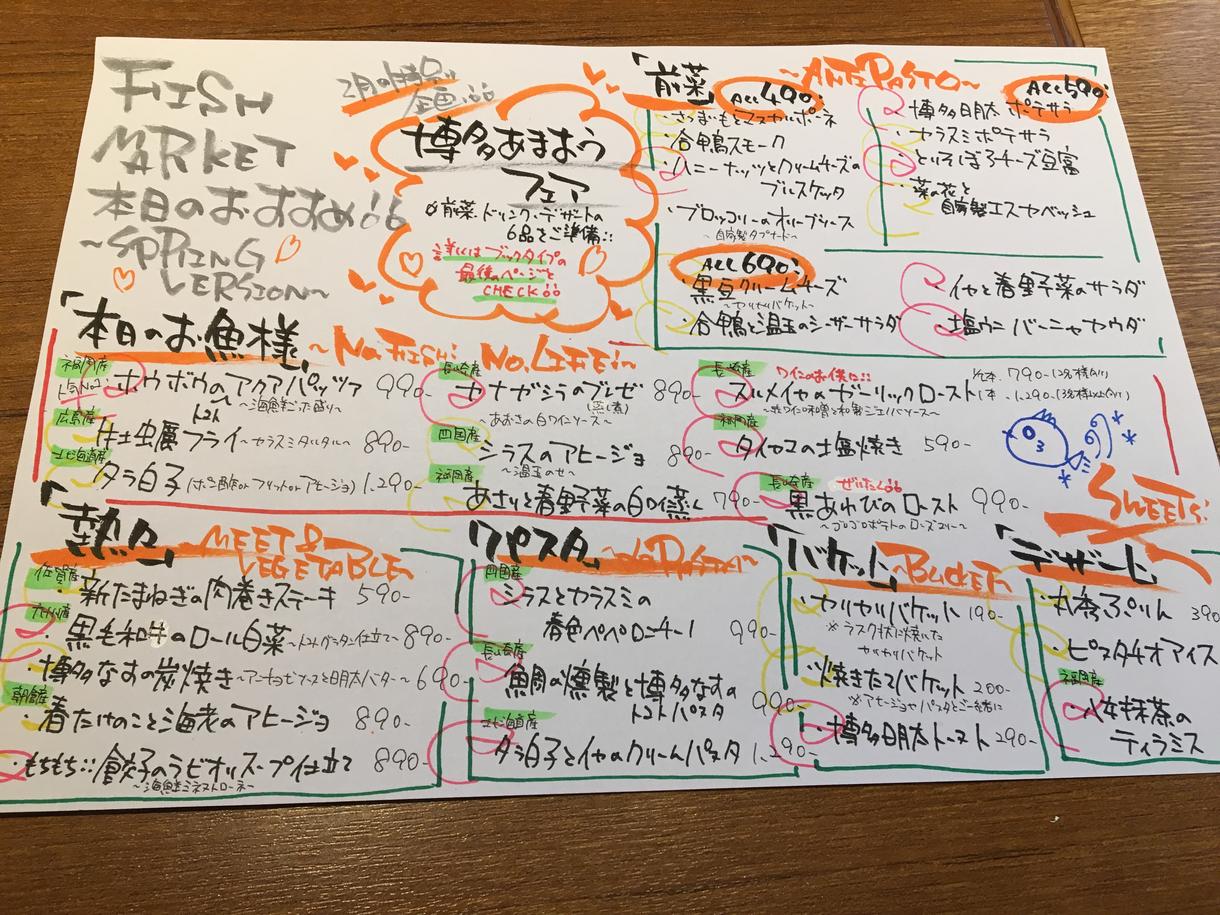 FIISH
MARKET
本日のおすすめ!!
~SPPING
VERSION~
2月の特別
企画!!
博多あまおう
フェア
前菜・ドリンク・デザートの
6品をご準備!!
詳しくはブックタイプの
最後のページを
CHECK!!
「前菜」~ANTIPASTO~
ALL490-
・さつまいもとマスカルポーネ
・合鴨スモーク
・ハニーナッツとクリームチーズの
ブルスケッタ
・ブロッコリーのオリーブソース
~自家製タプナード~
ALL590-
・博多明太ポテサラ
・カラスミポテサラ
・といそぼろチーズ豆富
・菜の花と
自家製エスカベッシュ
ALL690-
・黒豆クリームチーズ
~カリカリバケット~
・合鴨と温玉のシーザーサラダ
・イカと春野菜のサラダ
・塩ウニバーニャカウダ
「本日のお魚様」~No.FIISH! No.LIFE!~
福岡産
人気No.1
ホウボウのアクアパッツァ 990-
~海鮮ごった盛り~
広島産
牡蠣フライ~カラスミタルタル~ 890-
北海道産
タラ白子(ポン酢orフリットorアヒージョ) 1.290-
長崎産
カナガシラのブレゼ 890-
(蒸し煮)
~あおさの白ワインソース~
四国産
シラスのアヒージョ 890-
~温玉のせ~
福岡産
あさりと春野菜の白ワイン蒸し 790-
長崎産
ワインのお供に!!
スルメイカのガーリックロースト ½本 790-(2名様向け)
1本 1.290-(3名様以上向け)
~赤ワイン和風と和製ジェノバソース~
福岡産
タイカマの塩焼き 590-
長崎産
ぜいたく!!
黒あわびのロースト 990-
~ゴロゴロポテトのローズマリー~
「熱々」~MEET&
VEGETABLE~
佐賀産
・新たまねぎの肉巻きステーキ 590-
九州産
・黒毛和牛のロール白菜~トマトグラタン仕立て~ 890-
・博多なすの炭焼き~アンチョビソースと明太バター~ 690-
朝倉産
・春たけのこと海老のアヒージョ 890-
・もちもち!!餃子のラビオリスープ仕立て 890-
~海鮮ミネストローネ~
「パスタ」~LaPASTA~
四国産
シラスとカラスミの
春色ペペロンチーノ 990-
長崎産
鯛の燻製と博多なすの
トマトパスタ 990-
北海道産
タラ白子とイカのクリームパスタ 1.290-
「バケット」~BUCKET~
・カリカリバケット 190-
※ラスク状に焼いた
カリカリバケット
・焼きたてバケット 200-
※アヒージョやパスタとご一緒に
・博多明太トースト 290-
SWEETS!
「デザート」
・丸秀ぷりん 390
・ピスタチオアイス
福岡産
・八女抹茶の
ティラミス